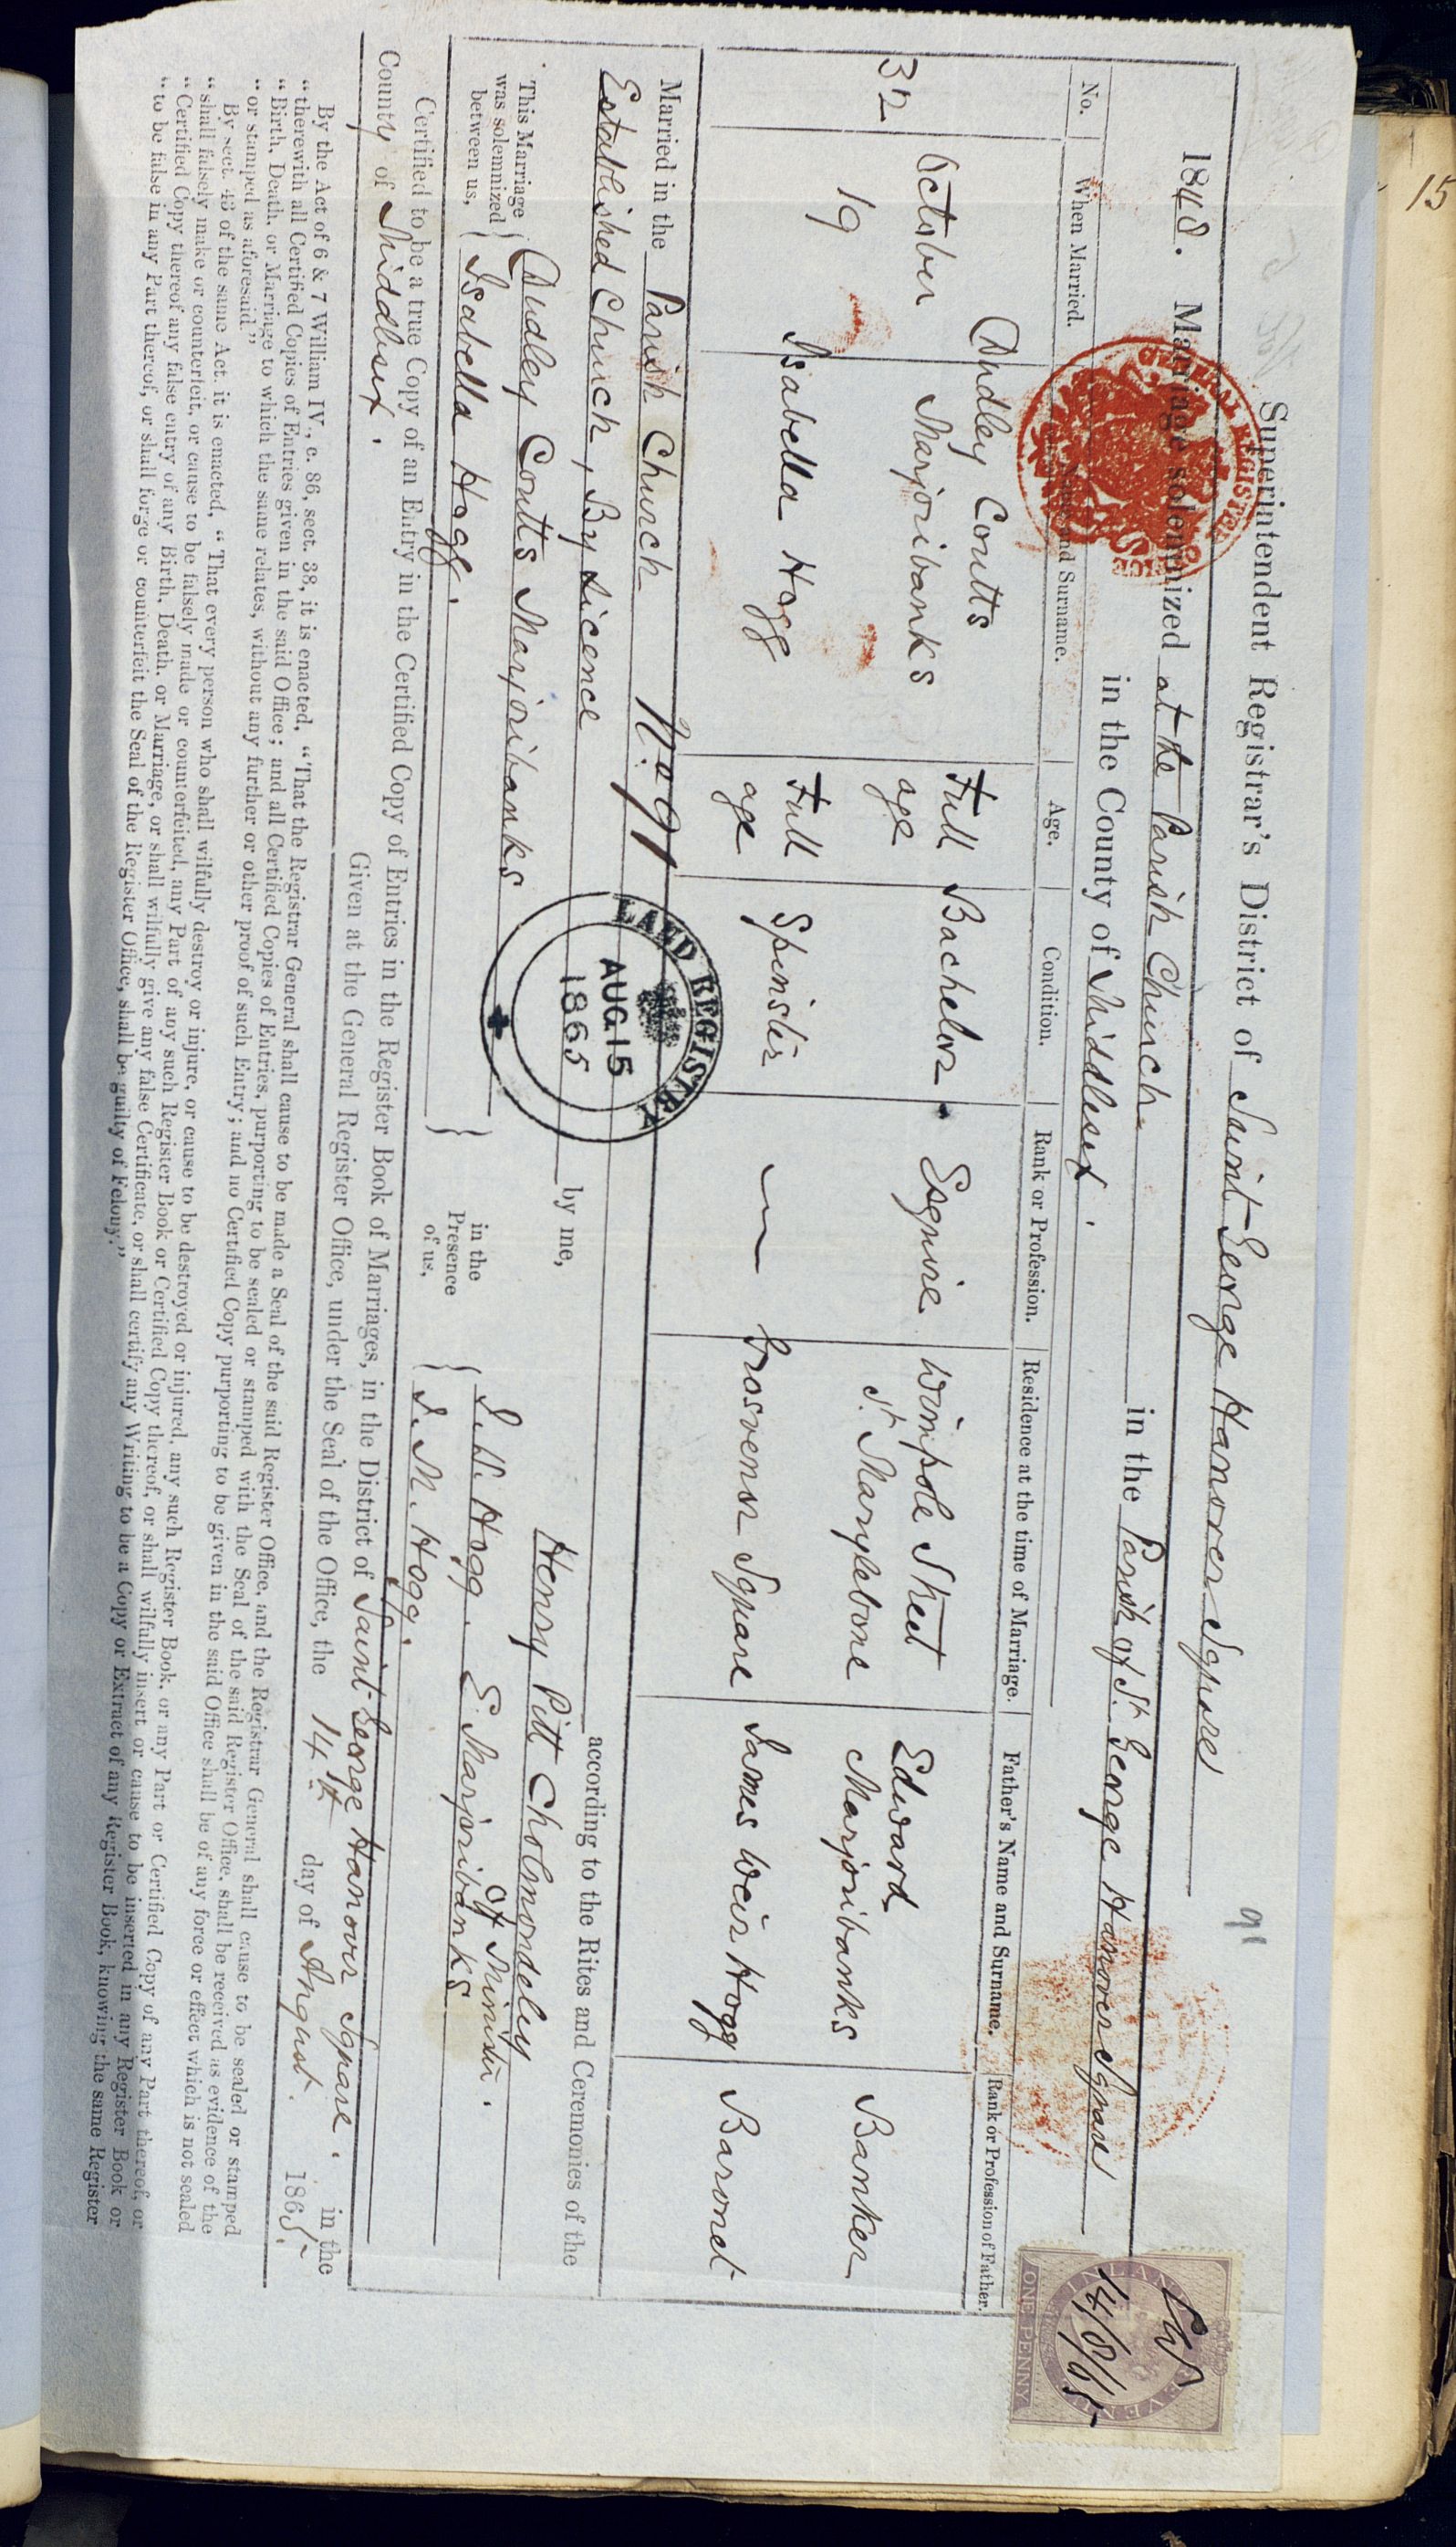 15
91
Superintendent Registrar's District of Saint George Hanover Square
1848. Marriage solemnized at the Parish Church in the Parish of St. George Hanover Square
in the County of Middlesex.
No. When Married. Name and Surname. Age. Condition. Rank or Profession. Residence at the time of Marriage. Father's Name and Surname. Rank or Profession of Father.
32 October 19
Dudley Coutts Marjoribanks Full age Bachelor Esquire Wimpole Street St. Marylebone Edward Marjoribanks Banker
Isabella Hogg Full age Spinster — Grosvenor Square James Weir Hogg Baronet
Married in the Parish Church No. 91 according to the Rites and Ceremonies of the
Established Church, By Licence by me, Henry Pitt Cholmondeley
Off Minister.
This Marriage was solemnized between us,
Dudley Coutts Marjoribanks
Isabella Hogg.
in the Presence of us,
J. W. Hogg. E. Marjoribanks
J. M. Hogg.
Certified to be a true Copy of an Entry in the Certified Copy of Entries in the Register Book of Marriages, in the District of Saint George Hanover Square. in the
County of Middlesex.
Given at the General Register Office, under the Seal of the Office, the 14th day of August. 1865.
By the Act of 6 & 7 William IV., c. 86, sect. 38, it is enacted, "That the Registrar General shall cause to be made a Seal of the said Register Office, and the Registrar General shall cause to be sealed or stamped
"therewith all Certified Copies of Entries given in the said Office; and all Certified Copies of Entries, purporting to be sealed or stamped with the Seal of the said Register Office, shall be received as evidence of the
"Birth, Death, or Marriage to which the same relates, without any further or other proof of such Entry; and no Certified Copy purporting to be given in the said Office shall be of any force or effect which is not sealed
"or stamped as aforesaid."
By sect. 43 of the same Act, it is enacted, "That every person who shall wilfully destroy or injure, or cause to be destroyed or injured, any such Register Book, or any Part or Certified Copy of any Part thereof, or
"shall falsely make or counterfeit, or cause to be falsely made or counterfeited, any Part of any such Register Book or Certified Copy thereof, or shall wilfully insert or cause to be inserted in any Register Book or
"Certified Copy thereof any false entry of any Birth, Death, or Marriage, or shall wilfully give any false Certificate, or shall certify any Writing to be a Copy or Extract of any Register Book, knowing the same Register
"to be false in any Part thereof, or shall forge or counterfeit the Seal of the Register Office, shall be guilty of Felony."
LAND REGISTRY
AUG 15
1865
INLAND REVENUE
ONE PENNY
14/8/65